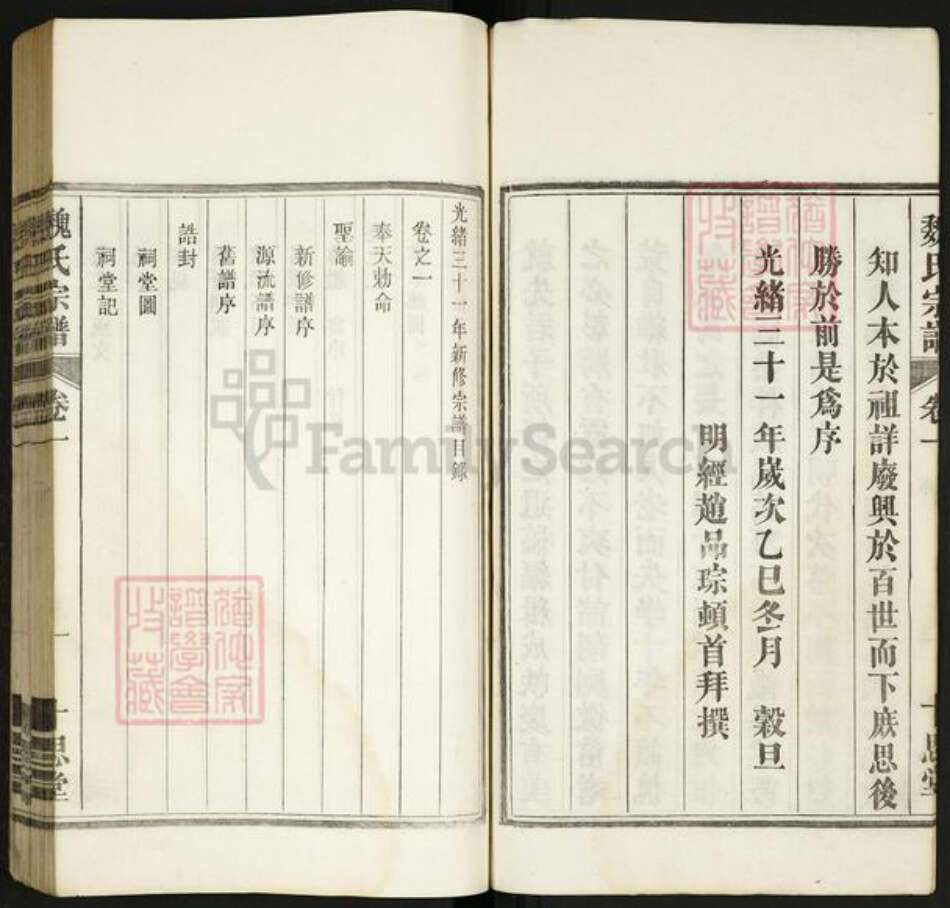 知人本於祖詳廢興於百世而下庶思後
勝於前是爲序
光緒三十一年歲次乙巳冬月 穀旦
明經趙品琮頓首拜撰
光緒三十一年新修宗譜目錄
卷之一
奉天勅命
聖諭
新修譜序
源流譜序
舊譜序
誥封
祠堂圖
祠堂記
魏氏宗譜 卷一 一 十思堂
FamilySearch